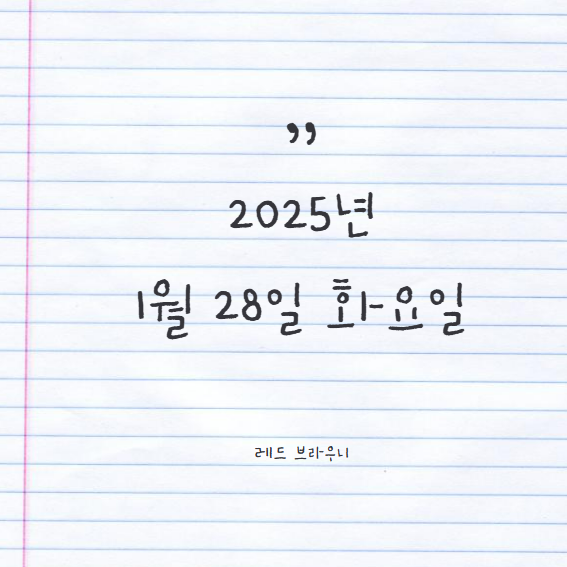 ”
2025년
1월 28일 화요일
레드 브라우니